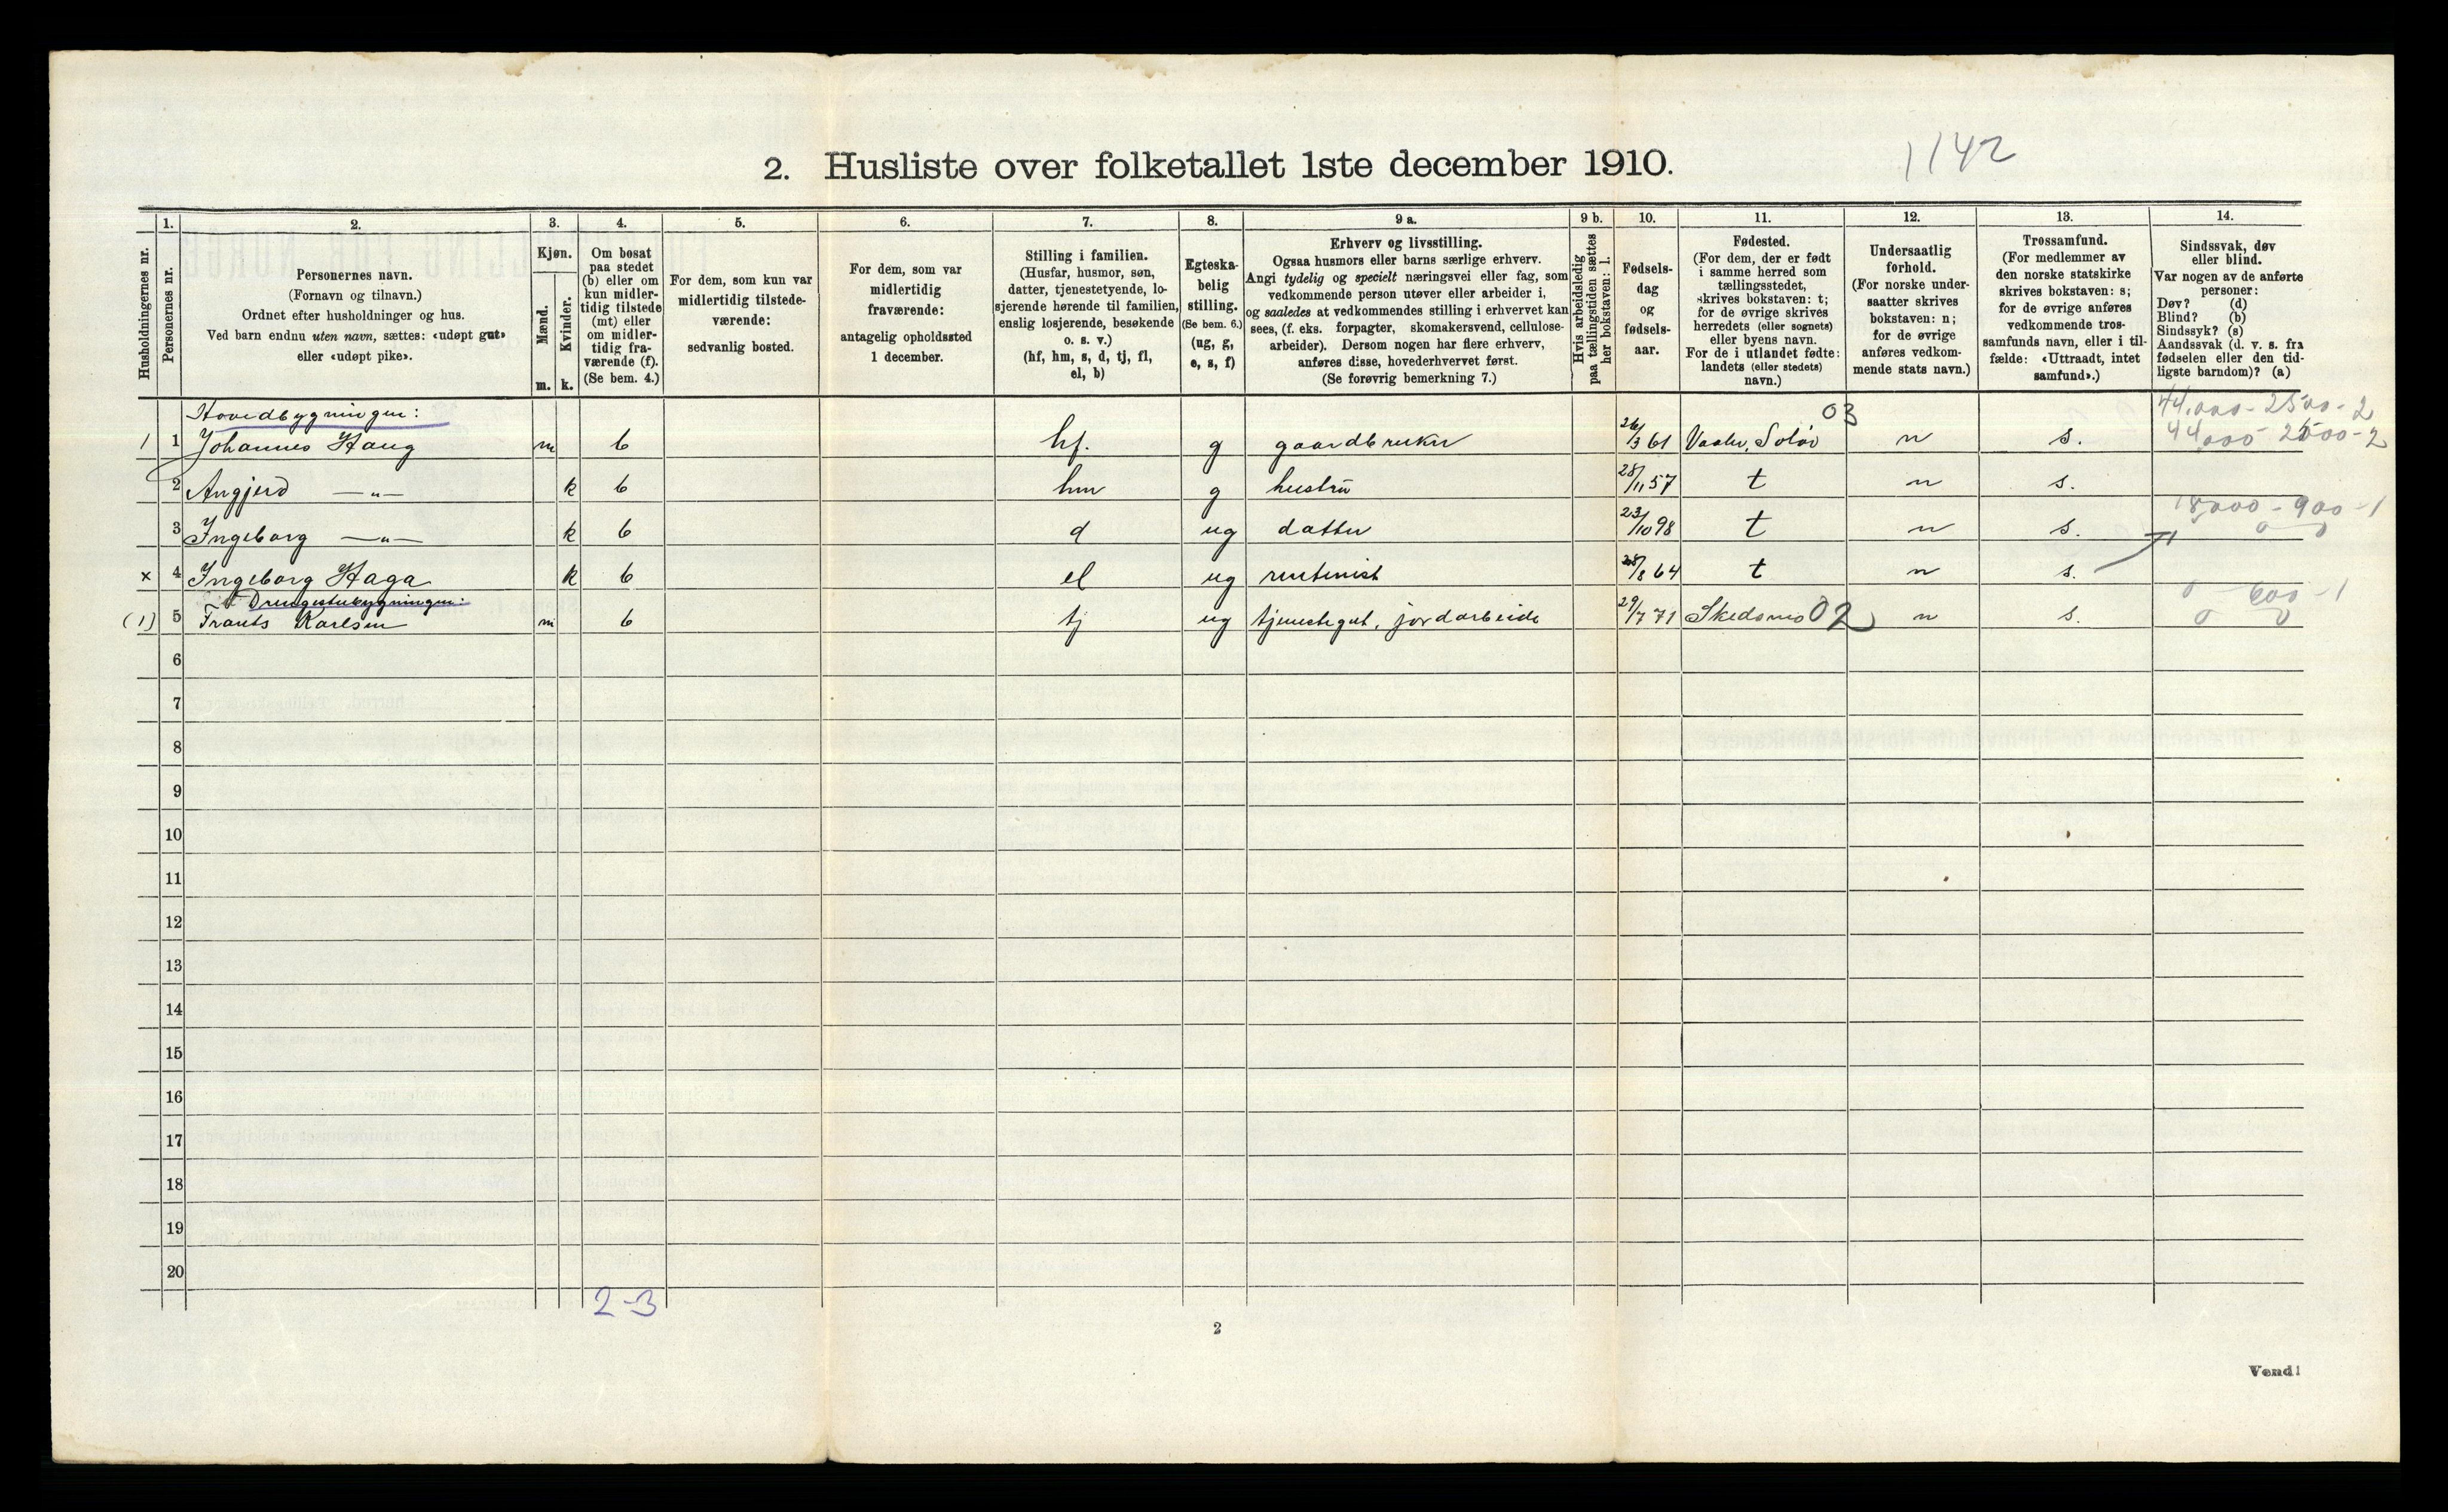 2. Husliste over folketallet 1ste december 1910.
1142
Husholdningernes nr.
1.
Personernes nr.
2.
Personernes navn.
(Fornavn og tilnavn.)
Ordnet efter husholdninger og hus.
Ved barn endnu uten navn, sættes: «udøpt gut»
eller «udøpt pike».
3.
Kjøn.
Mænd.
Kvinder.
m. k.
4.
Om bosat
paa stedet
(b) eller om
kun midler-
tidig tilstede
(mt) eller
om midler-
tidig fra-
værende (f).
(Se bem. 4.)
5.
For dem, som kun var
midlertidig tilstede-
værende:
sedvanlig bosted.
6.
For dem, som var
midlertidig
fraværende:
antagelig opholdssted
1 december.
7.
Stilling i familien.
(Husfar, husmor, søn,
datter, tjenestetyende, lo-
sjerende hørende til familien,
enslig losjerende, besøkende
o. s. v.)
(hf, hm, s, d, tj, fl,
el, b)
8.
Egteska-
belig
stilling.
(Se bem. 6.)
(ug, g,
e, s, f)
9 a.
Erhverv og livsstilling.
Ogsaa husmors eller barns særlige erhverv.
Angi tydelig og specielt næringsvei eller fag, som
vedkommende person utøver eller arbeider i,
og saaledes at vedkommendes stilling i erhvervet kan
sees, (f. eks. forpagter, skomakersvend, cellulose-
arbeider). Dersom nogen har flere erhverv,
anføres disse, hovederhvervet først.
(Se forøvrig bemerkning 7.)
9 b.
Hvis arbeidsledig
paa tællingstiden sættes
her bokstaven: l.
10.
Fødsels-
dag
og
fødsels-
aar.
11.
Fødested.
(For dem, der er født
i samme herred som
tællingsstedet,
skrives bokstaven: t;
for de øvrige skrives
herredets (eller sognets)
eller byens navn.
For de i utlandet fødte:
landets (eller stedets)
navn.)
12.
Undersaatlig
forhold.
(For norske under-
saatter skrives
bokstaven: n;
for de øvrige
anføres vedkom-
mende stats navn.)
13.
Trossamfund.
(For medlemmer av
den norske statskirke
skrives bokstaven: s;
for de øvrige anføres
vedkommende tros-
samfunds navn, eller i til-
fælde: «Uttraadt, intet
samfund».)
14.
Sindssvak, døv
eller blind.
Var nogen av de anførte
personer:
Døv? (d)
Blind? (b)
Sindssyk? (s)
Aandssvak (d. v. s. fra
fødselen eller den tid-
ligste barndom)? (a)
Hovedbygningen:
03
44.000 - 2500 - 2
1 1 Johannes Haug m b hf. g gaardbruker 26/3 61 Vaaler, Solør n s. 44000 2500 - 2
2 Angjerd —„— k b hm g hustru 28/11 57 t n s.
18000 - 900 - 1
3 Ingeborg —„— k b d ug datter 23/10 98 t n s. 0 0
x 4 Ingeborg Haga k b el ug rentenist 28/8 64 t n s.
Drengestubygningen:
0 600 - 1
(1) 5 Frants Karlsen m b tj ug tjenestegut, jordarbeide 29/7 71 Skedsmo 02 n s. 0 0
6
7
8
9
10
11
12
13
14
15
16
17
18
19
20
2-3
2
Vend!